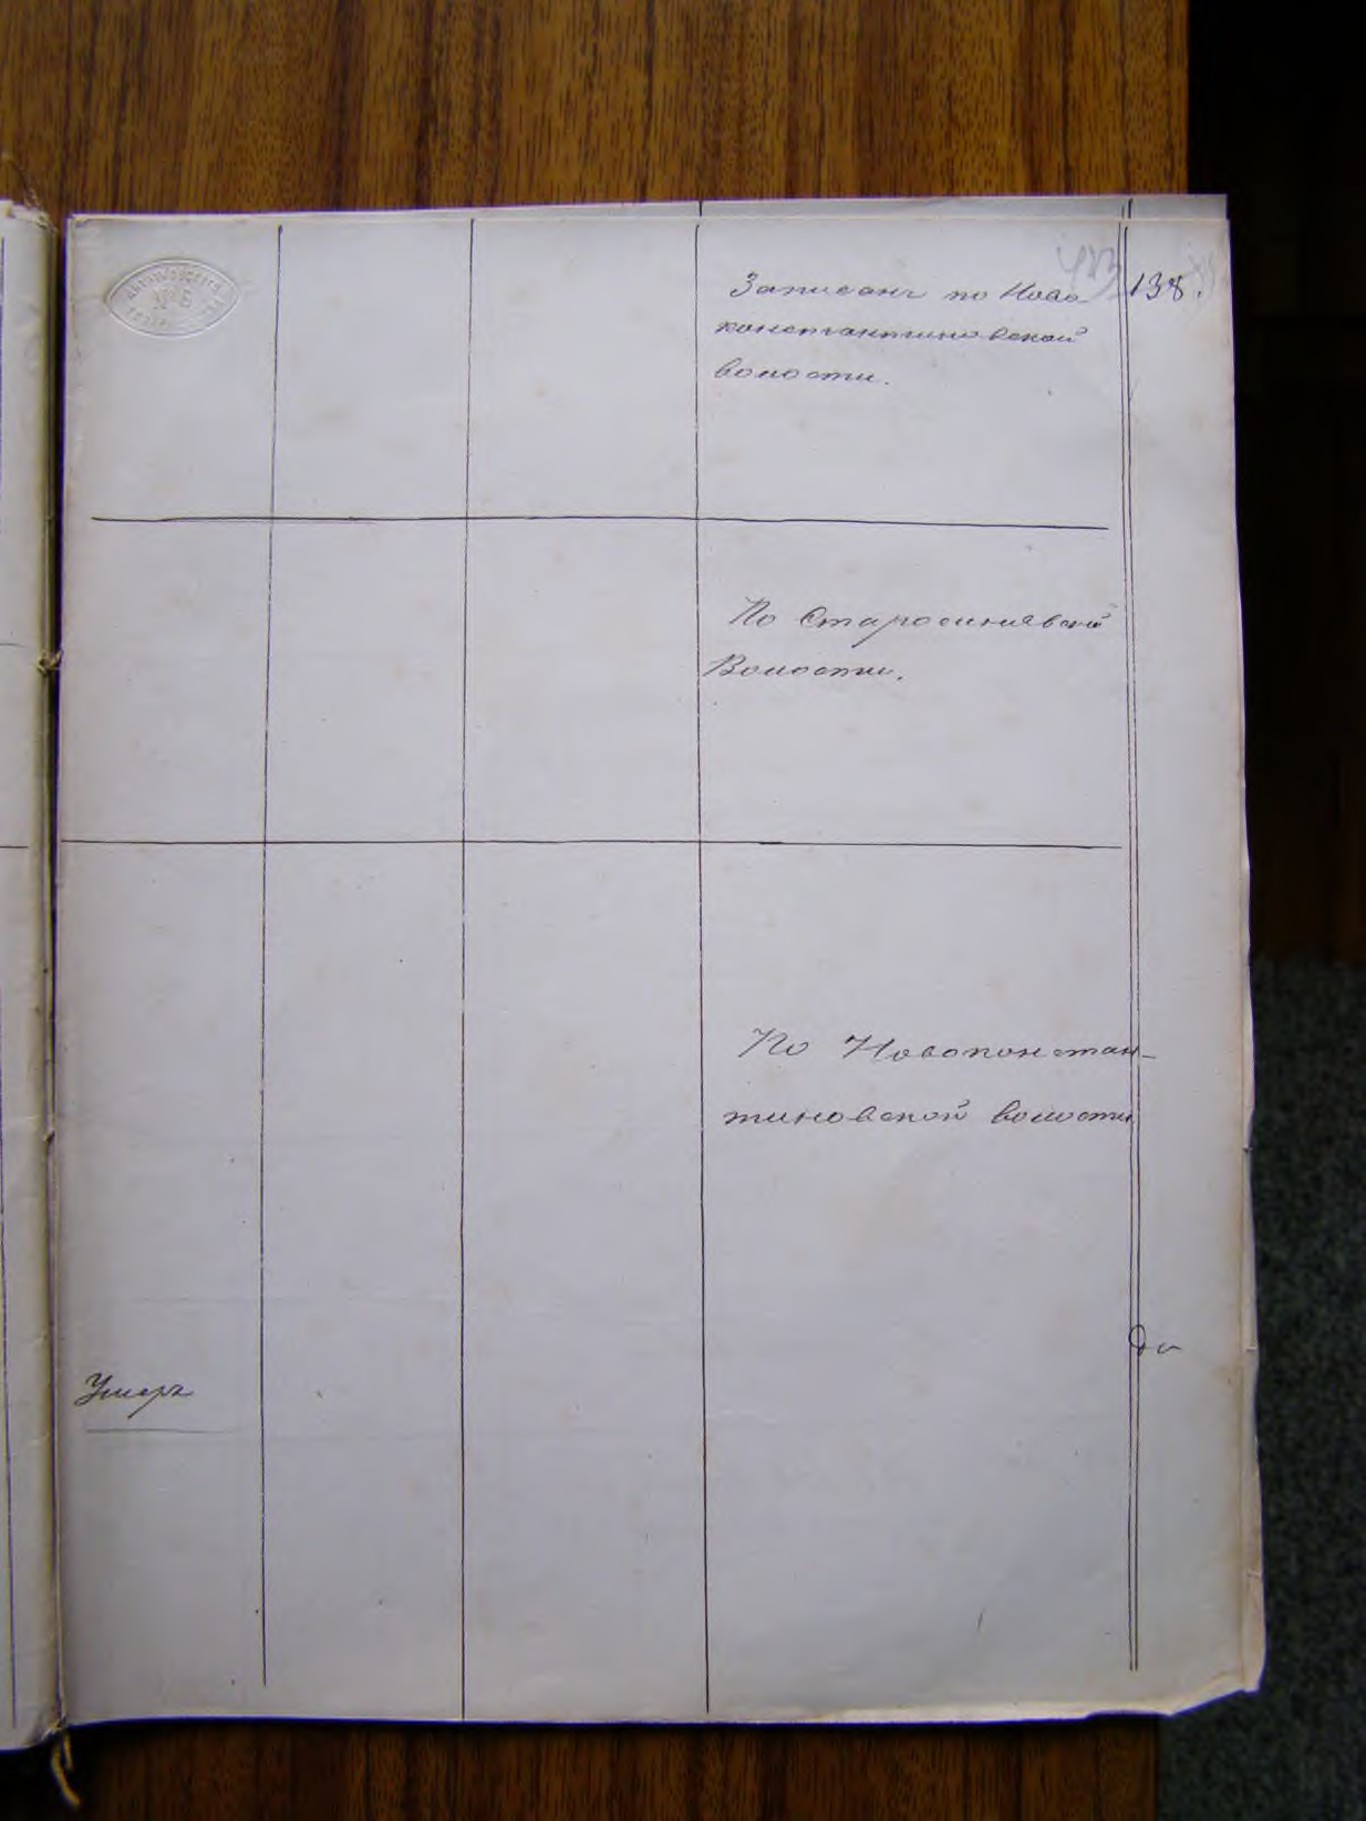 Записанъ по Ново
константиновской
волости.
138.
По Старосинявской
Волости.
По Новоконстан-
тиновской волости
Умеръ